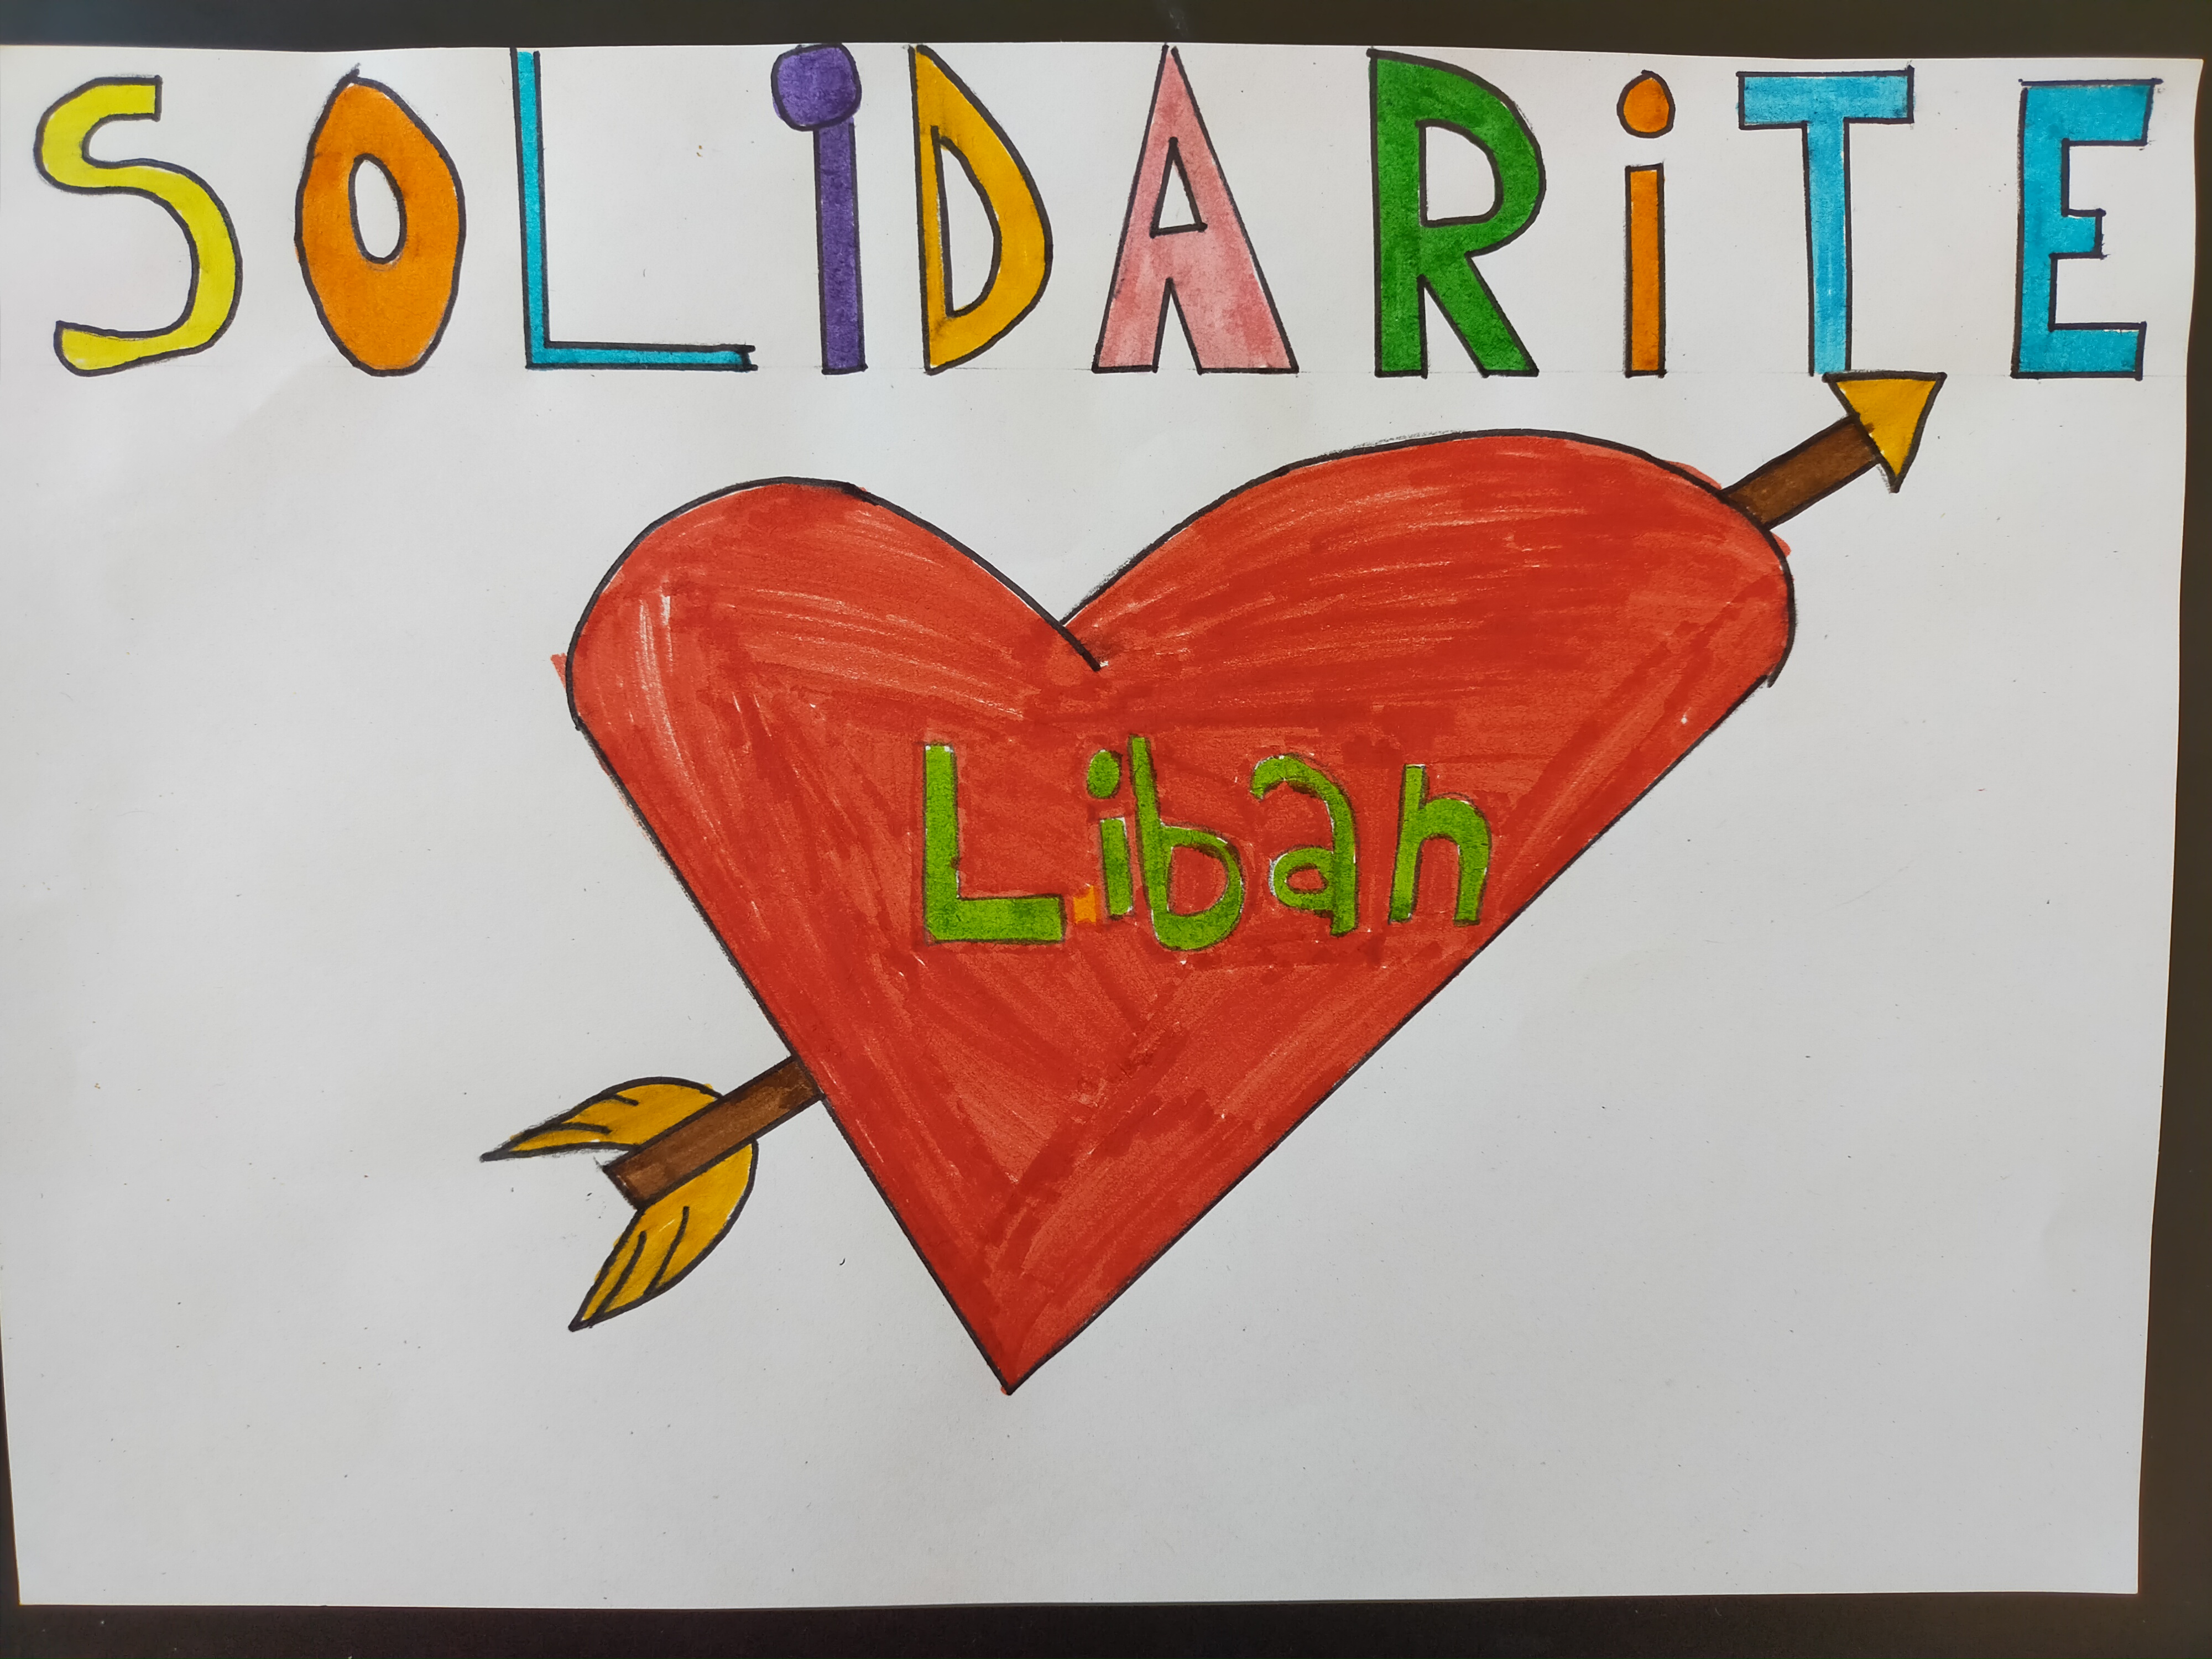 SOLiDARiTE
Liban